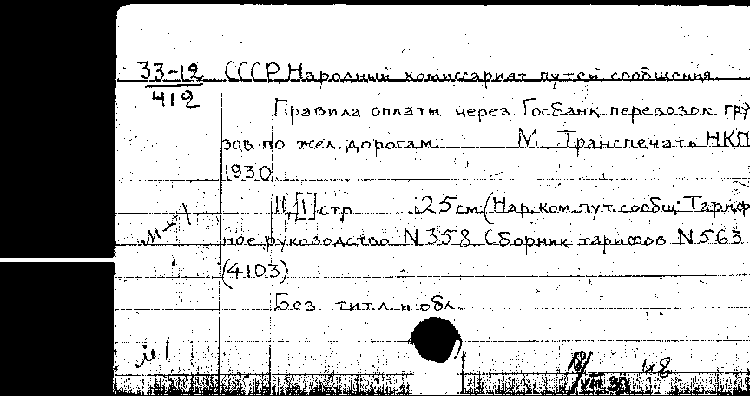 33-12 СССР. Народный комиссариат путей сообщения.
412
Правила оплаты через Госбанк перевозок гру
зов по жел. дорогам. М. Транспечать НКП
1930.
11,[1] стр. 25 см. (Нар. ком. пут. сообщ. Тариф
ное руководство N 358. Сборник тарифов N 563
(4103)
Без титл. и обл.
м-1
м 1
18/VIII 30 48